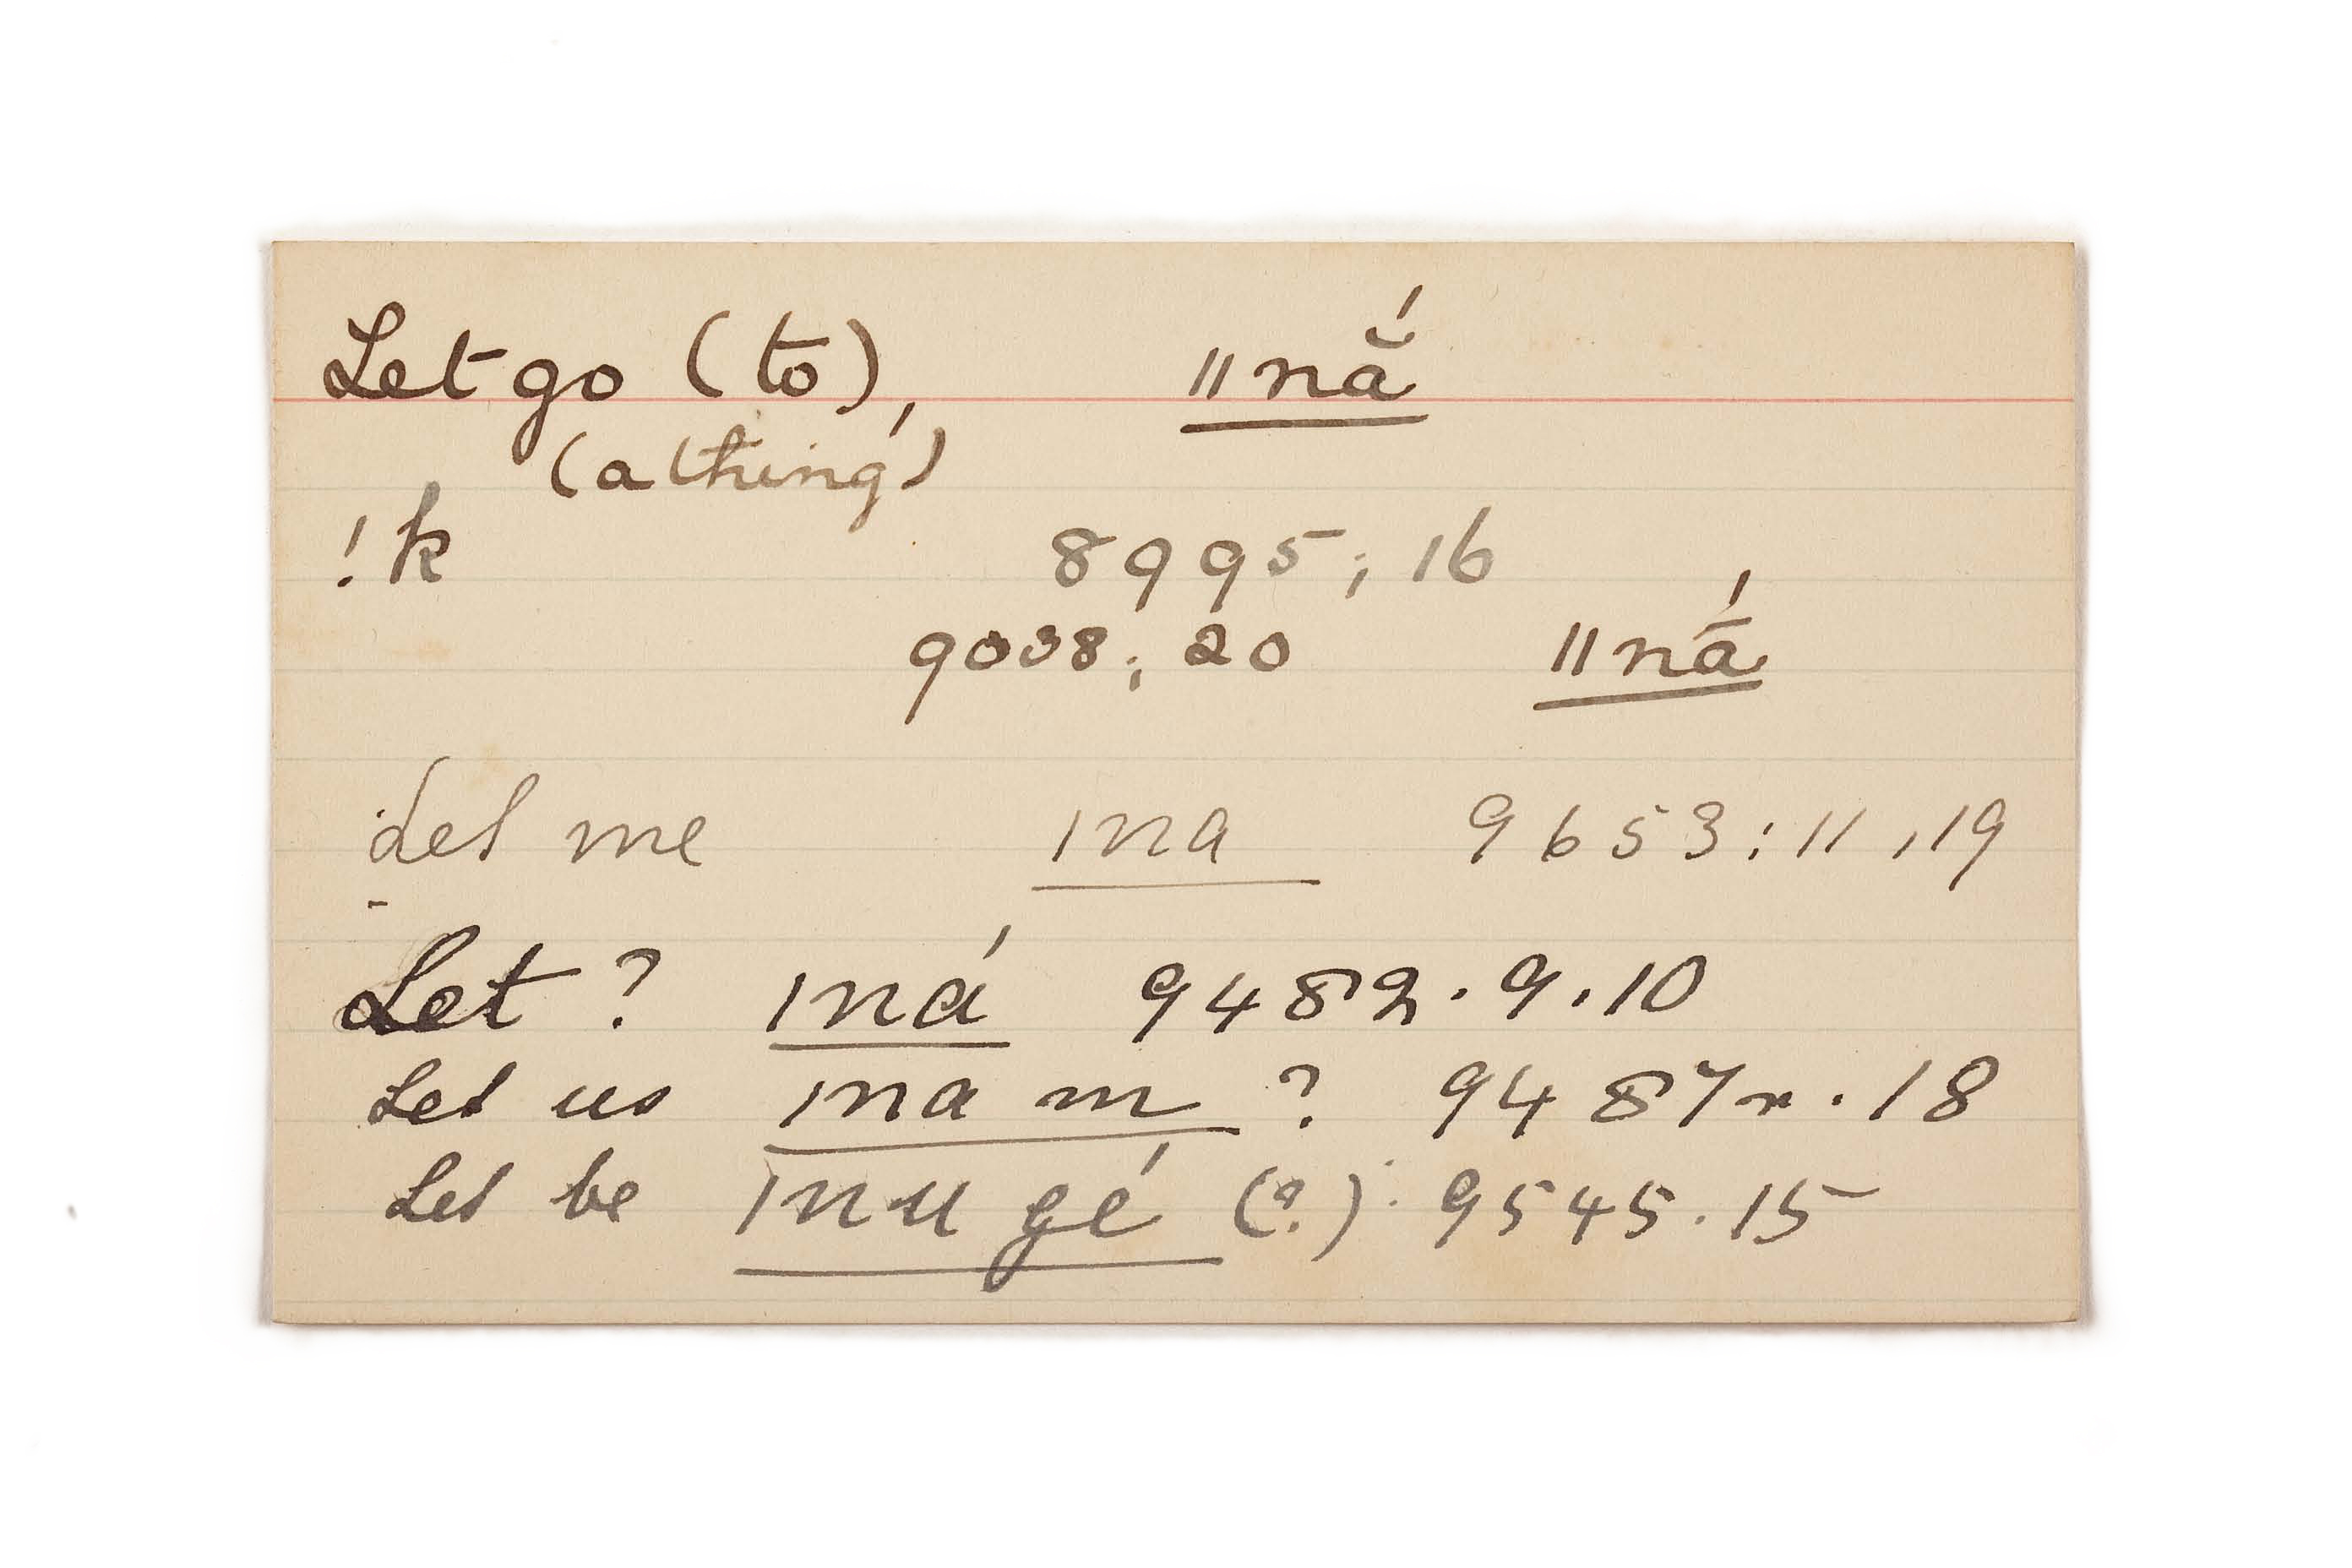 Let go (to), ǁnā̆́
(a thing)
!k 8995; 16
9038; 20 ǁnā́
Let me ǀna 9653: 11, 19
Let? ǀná 9482. 9. 10
Let us ǀna m? 9487r. 18
Let be ǀnu gé (?). 9545. 15